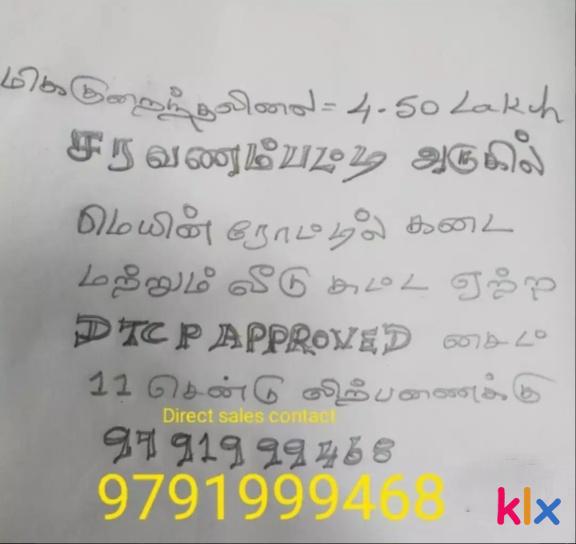 மிககுறைந்தவிலை = 4.50 Lakh
சரவணம்பட்டி அருகில்
மெயின் ரோட்டில் கடை
மற்றும் வீடு கட்ட ஏற்ற
DTCP APPROVED சைட்
11 செண்டு விற்பனைக்கு
Direct sales contact
9791999468
9791999468
klx